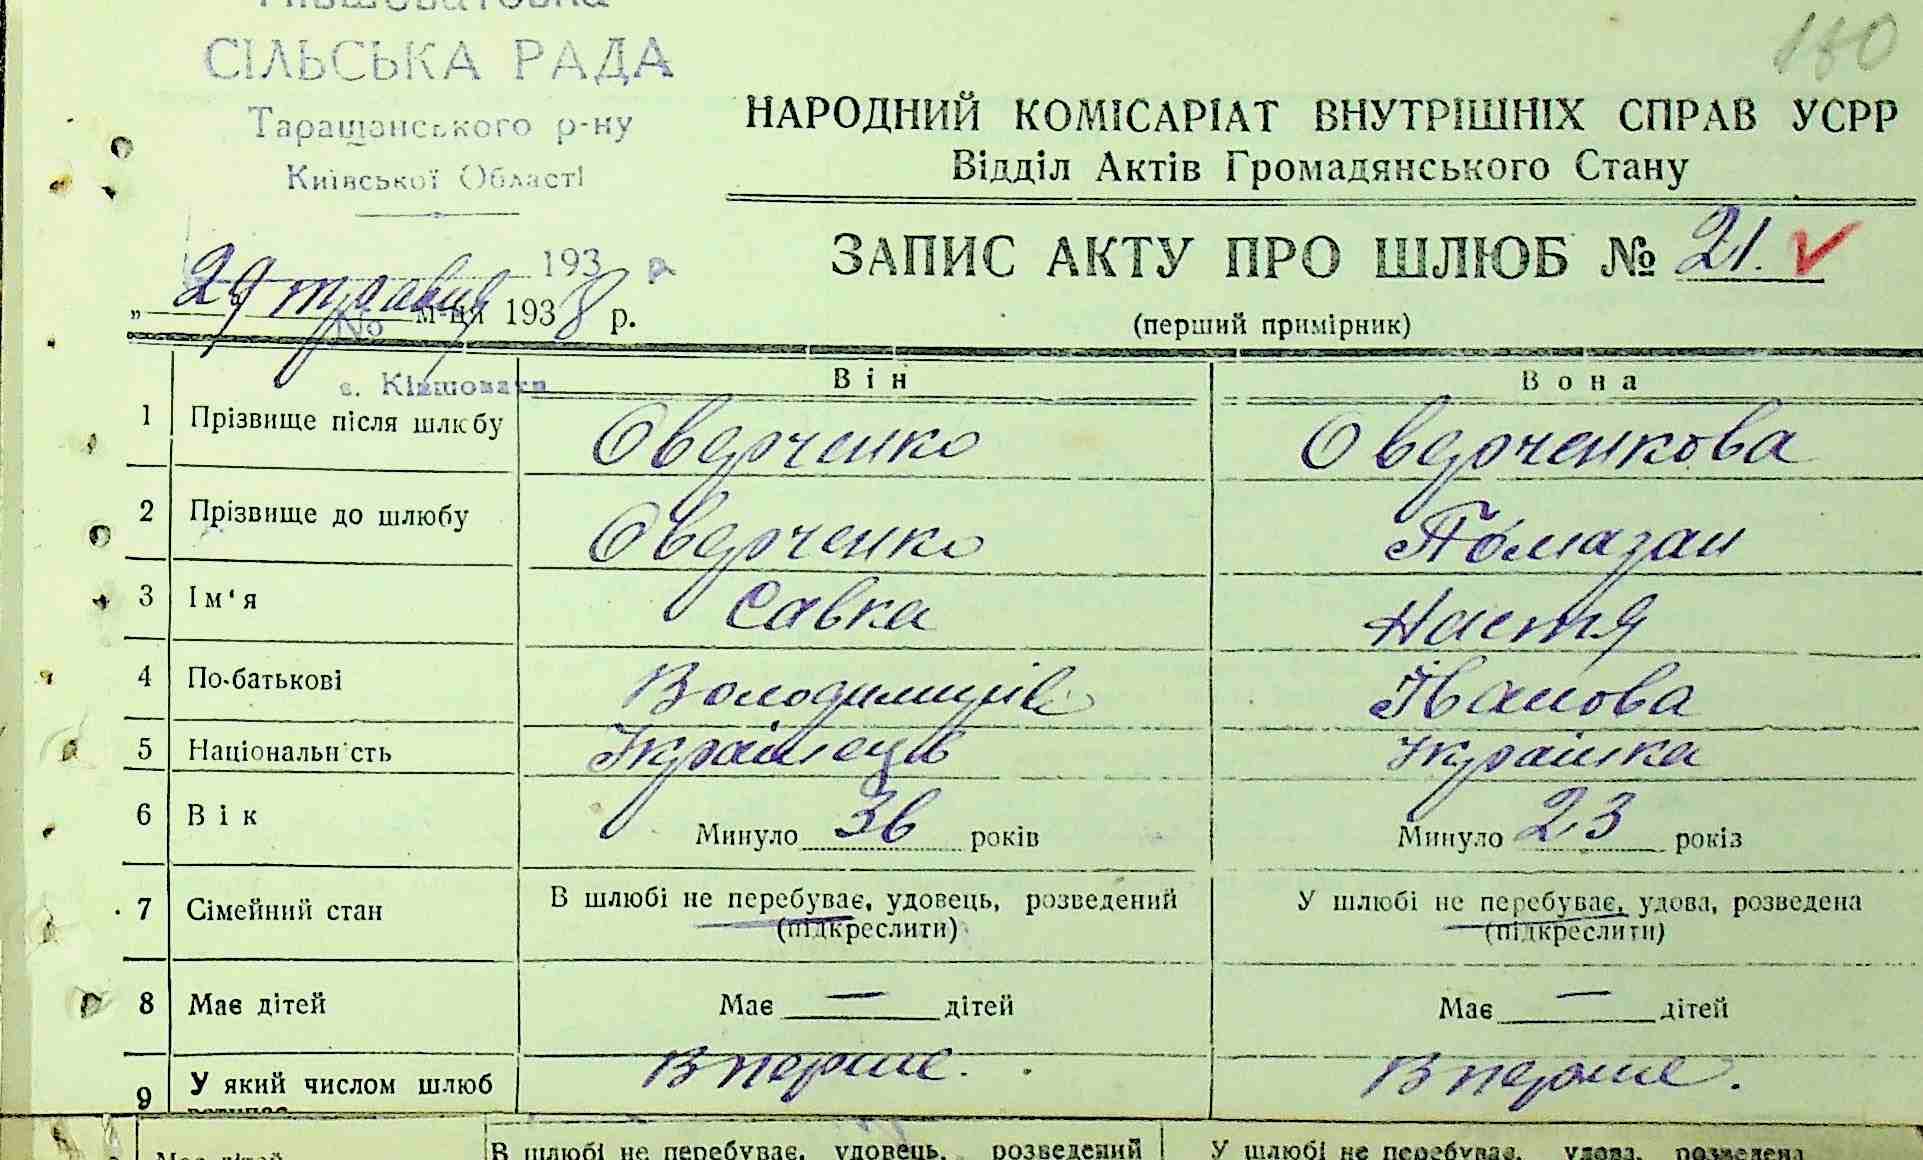 СІЛЬСЬКА РАДА
Таращанського р-ну
Київської Області
180
НАРОДНИЙ КОМІСАРІАТ ВНУТРІШНІХ СПРАВ УСРР
Відділ Актів Громадянського Стану
ЗАПИС АКТУ ПРО ШЛЮБ № 21.
(перший примірник)
193 р
„ 29 травня м-ця 1938 р.
№
с. Ківшовата
Він Вона
1 Прізвище після шлюбу Оверченко Оверченкова
2 Прізвище до шлюбу Оверченко Помазан
3 Ім'я Савка Настя
4 По-батькові Володимирів Іванова
5 Національність Українець Українка
6 Вік Минуло 36 років Минуло 23 років
7 Сімейний стан В шлюбі не перебуває, удовець, розведений У шлюбі не перебуває, удова, розведена
(підкреслити) (підкреслити)
8 Має дітей Має — дітей Має — дітей
9 У який числом шлюб Вперше. Вперше.
Має дітей В шлюбі не перебуває, удовець, розведений У шлюбі не перебуває, удова, розведена